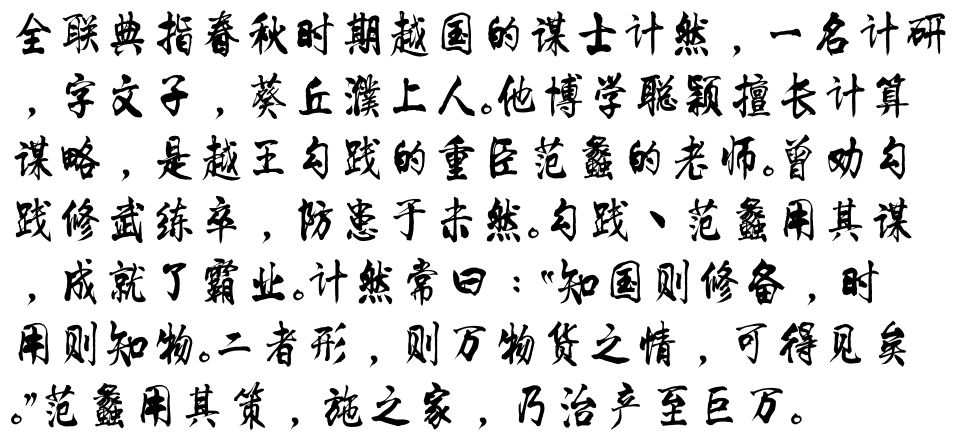 全联典指春秋时期越国的谋士计然，一名计研
，字文子，葵丘濮上人。他博学聪颖擅长计算
谋略，是越王勾践的重臣范蠡的老师。曾劝勾
践修武练卒，防患于未然。勾践、范蠡用其谋
，成就了霸业。计然常曰：“知国则修备，时
用则知物。二者形，则万物货之情，可得见矣
。”范蠡用其策，施之家，乃治产至巨万。